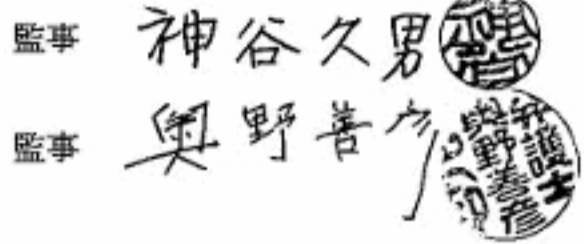 監事 神谷久男
監事 奥野善彦
弁護士
奥野善彦